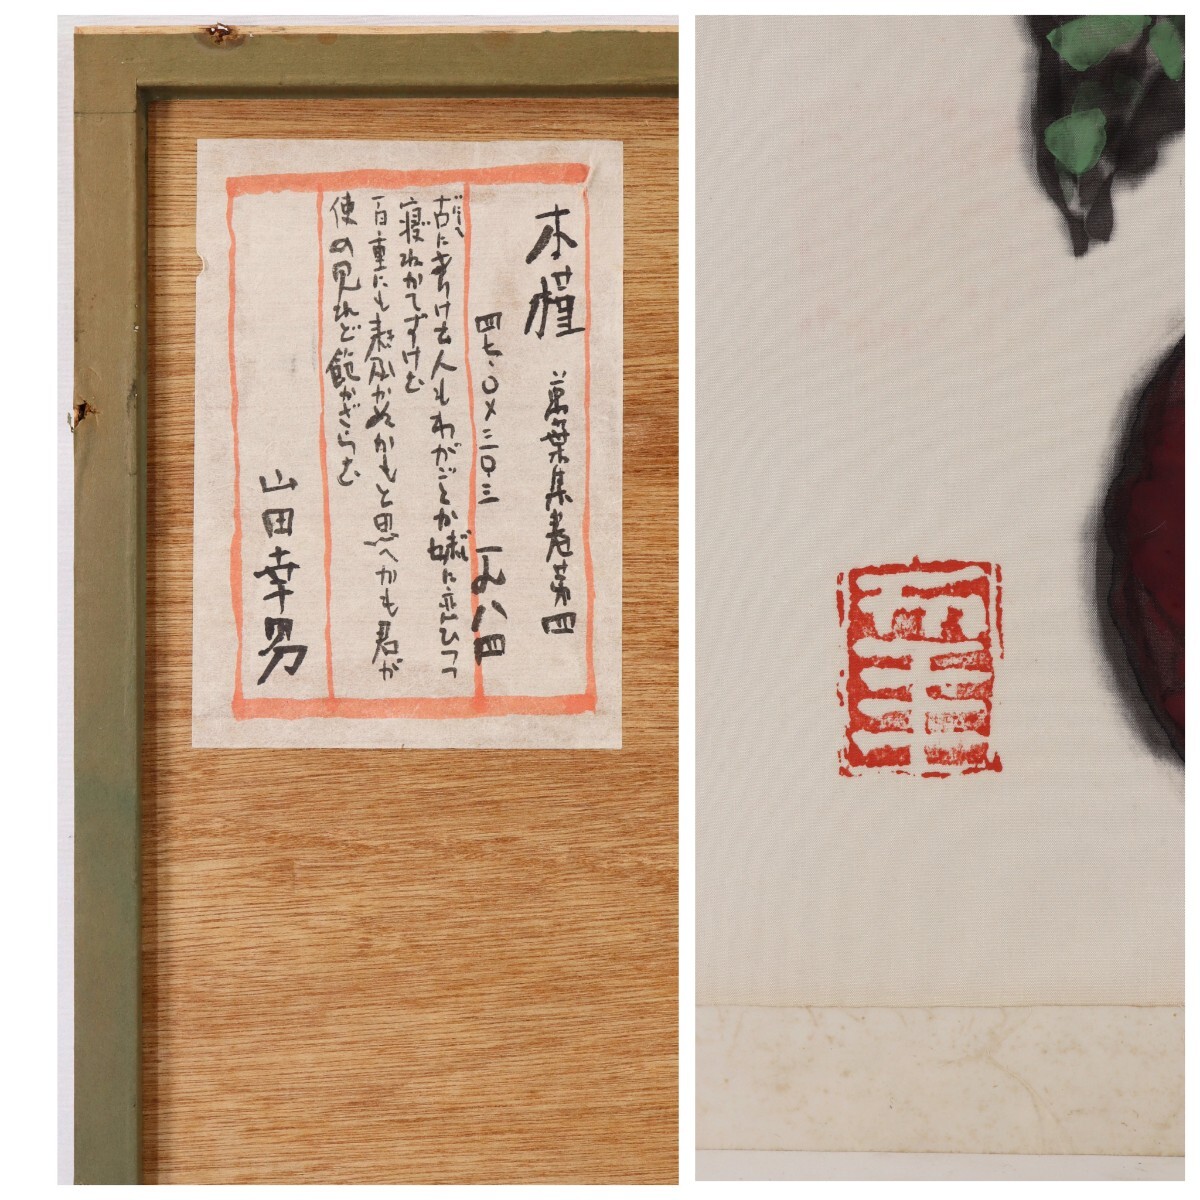 木槿 萬葉集巻第四
四七・〇×三〇・三 一九八四
古にありけむ人もわがごとか妹に恋ひつつ
寝ねかてずけむ
百重にも来及かぬかもと思へかも君が
使の見れど飽かざらむ
山田幸男